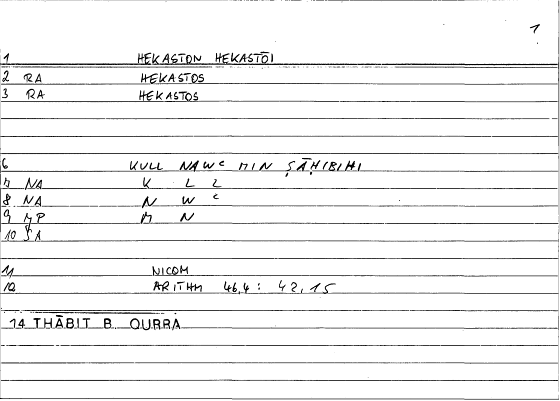 1
1 HEKASTON HEKASTŌI
2 RA HEKASTOS
3 RA HEKASTOS
6 KULL NAWᶜ MIN ṢĀḤIBIHI
7 NA K L L
8 NA N W ᶜ
9 MP M N
10 ṢA
11 NICOM
12 ARITHM 46,4 : 42,15
14 THĀBIT B. QURRA